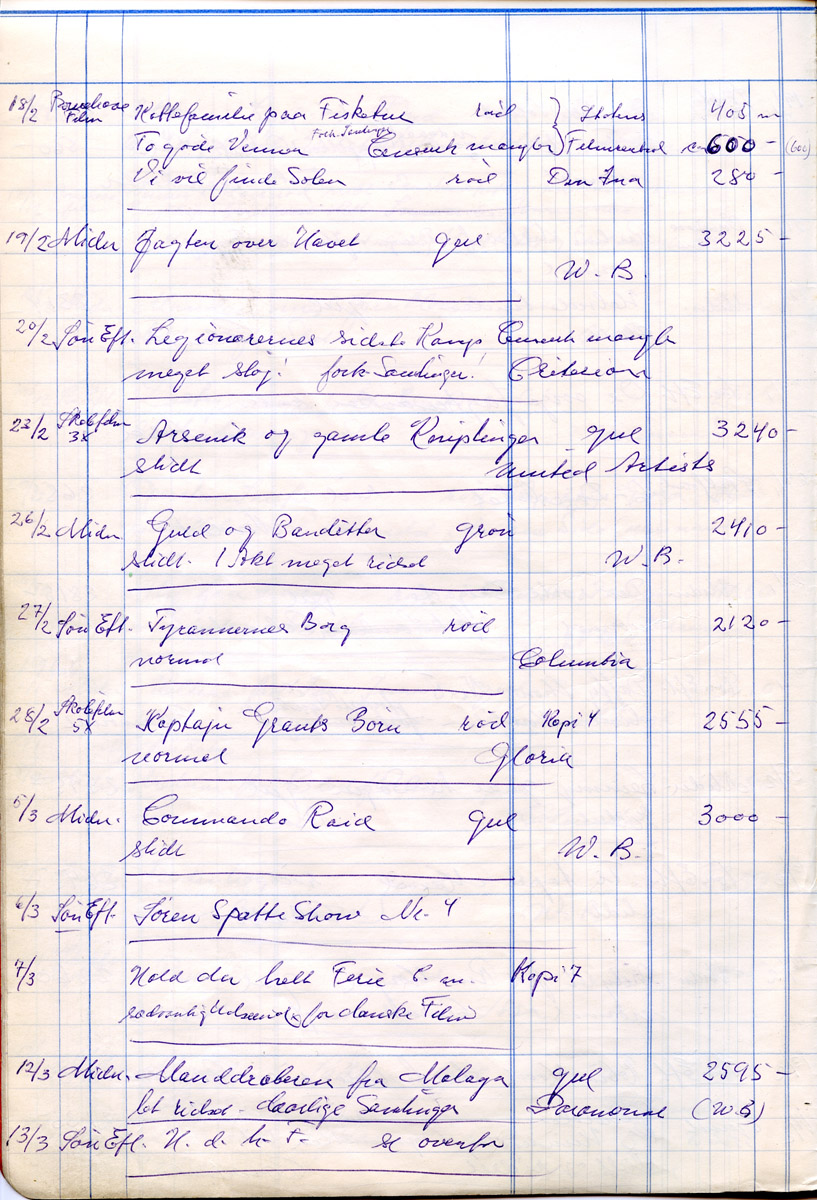 18/2 Børnehave Film Kattefamilie paa Fisketur rød 405 m
Fork Samlinger
To gode Venner Censurk mangler Filmcentral ca 600 - (600)
Vi vil finde Solen rød Den Ina 280 -
19/2 Midn Jagten over Havet gul 3225 -
W. B.
20/2 Søn Eft. Legionærernes sidste Kamp Censurk mangler
meget støj! fork-Samlinger! Criterion
23/2 Skolefilm 3x Arsenik og gamle Kniplinger gul 3240 -
slidt United Artists
26/2 Midn. Guld og Banditter grøn 2410 -
slidt. 1 Akt meget ridset W. B.
27/2 Søn Eft. Tyrannernes Borg rød 2120 -
normal Columbia
28/2 Skolefilm 5x Kaptajn Grants Børn rød Kopi 4 2555 -
normal Gloria
5/3 Midn. Commando Raid gul 3000 -
slidt W. B.
6/3 Søn Eft. Søren Spætte Show Nr. 4
7/3 Hold da helt Ferie Kopi 7
sædvanlig for danske Film
12/3 Midn. Manddraberen fra Malaga gul 2595 -
let ridset - daarlige Samlinger Paramount (W.B)
13/3 Søn Eft. H. d. h. F. se ovenfor